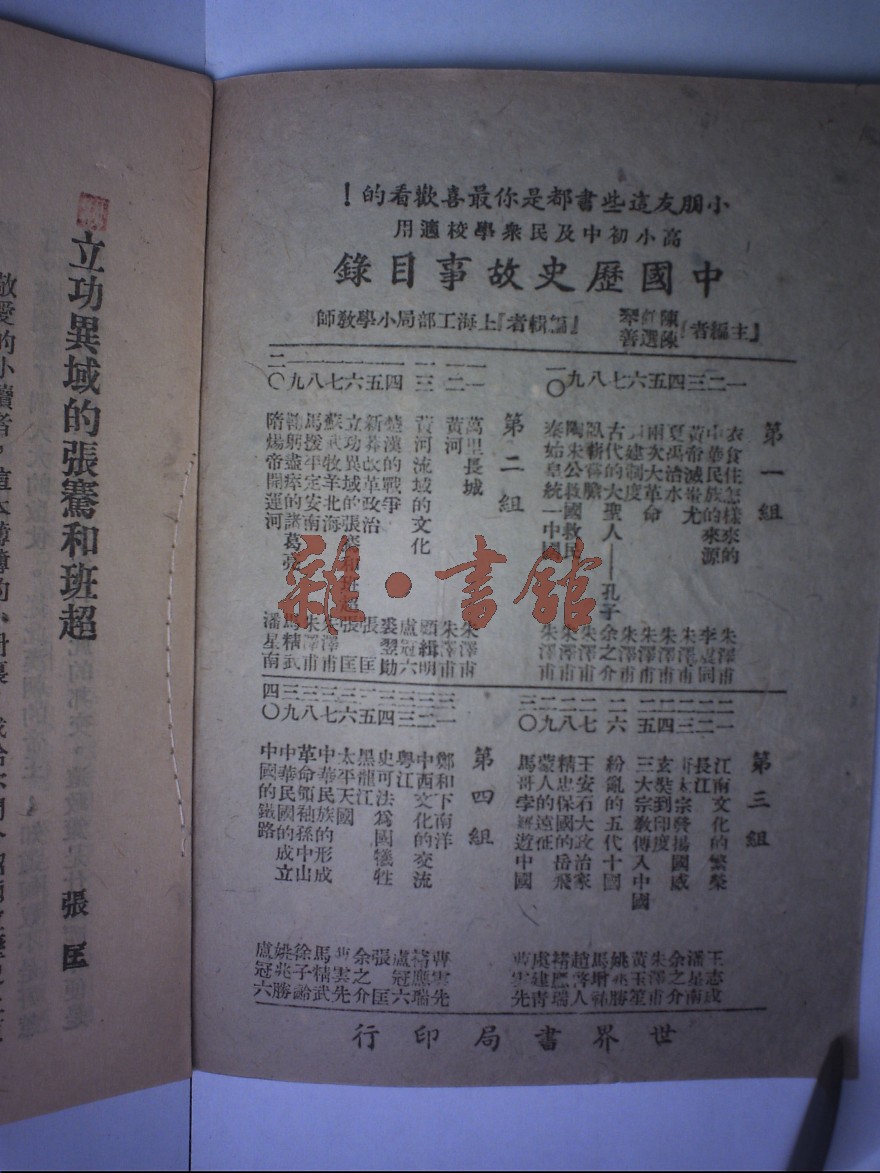 小朋友這些書都是你最喜歡看的！
高小初中及民衆學校適用
中國歷史故事目錄
『主編者』陳鶴琴 陳選善 『編輯者』上海工部局小學教師
第一組
一 衣食住怎樣來的 朱澤甫
二 中華民族的來源 李震同
三 黃帝滅蚩尤 朱澤甫
四 夏禹治水 朱澤甫
五 兩次大革命 朱澤甫
六 封建制度 朱澤甫
七 古代的大聖人——孔子 余之介
八 臥薪嘗膽 朱澤甫
九 陶朱公救國救民 朱澤甫
一〇 秦始皇統一中國 朱澤甫
第二組
一一 萬里長城 朱澤甫
一二 黃河 朱澤甫
一三 黃河流域的文化 顧緝明
一四 楚漢的戰爭 盧冠六
一五 新莽改革政治 裘翌勛
一六 立功異域的張騫和班超 張匡
一七 蘇武牧羊北海 朱澤甫
一八 馬援平定安南 朱澤甫
一九 鞠躬盡瘁的諸葛亮 馬精武
二〇 隋煬帝開運河 潘星南
第三組
二一 江南文化的繁榮 王志成
二二 長江 潘星南
二三 唐太宗發揚國威 余之介
二四 玄奘到印度 朱澤甫
二五 三大宗教傳入中國 黃玉笙
二六 紛亂的五代十國 姚兆勝
二七 王安石大政治家 馬增祜
二八 精忠保國的岳飛 趙啓人
二九 蒙人的遠征 褚應瑞
三〇 馬哥孛羅遊中國 曹雲先
第四組
三一 鄭和下南洋 曹雲先
三二 中西文化的交流 褚應瑞
三三 粵江 盧冠六
三四 史可法爲國犧牲 張匡
三五 黑龍江 余之介
三六 太平天國 曹雲先
三七 中華民族的形成 馬精武
三八 革命領袖孫中山 徐子齡
三九 中華民國的成立 姚兆勝
四〇 中國的鐵路 盧冠六
世界書局印行
雜·書館
立功異域的張騫和班超
張匡
敬愛的小讀者，這本薄薄的小册裏